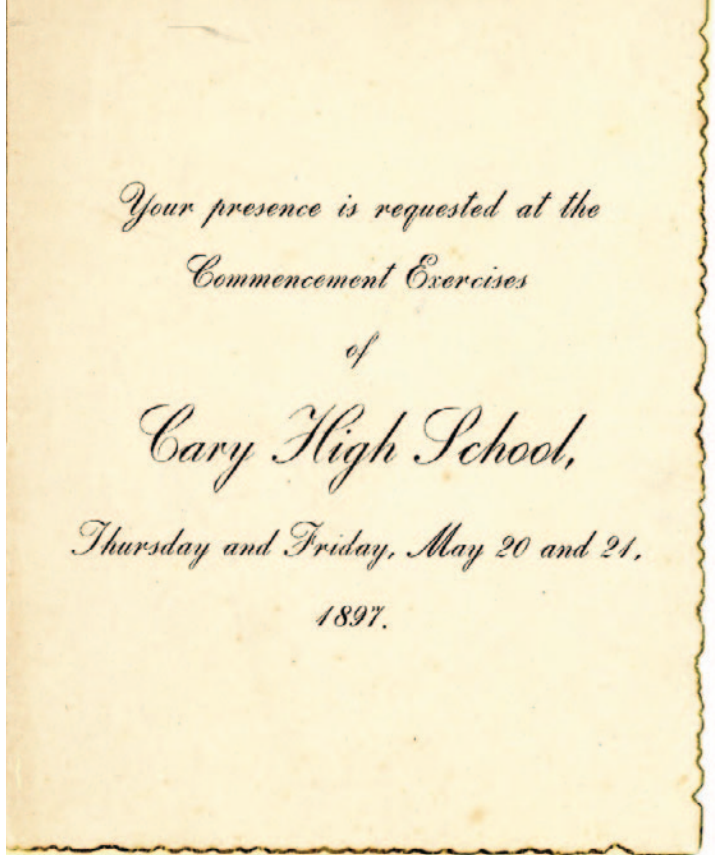 Your presence is requested at the
Commencement Exercises
of
Cary High School,
Thursday and Friday, May 20 and 21,
1897.